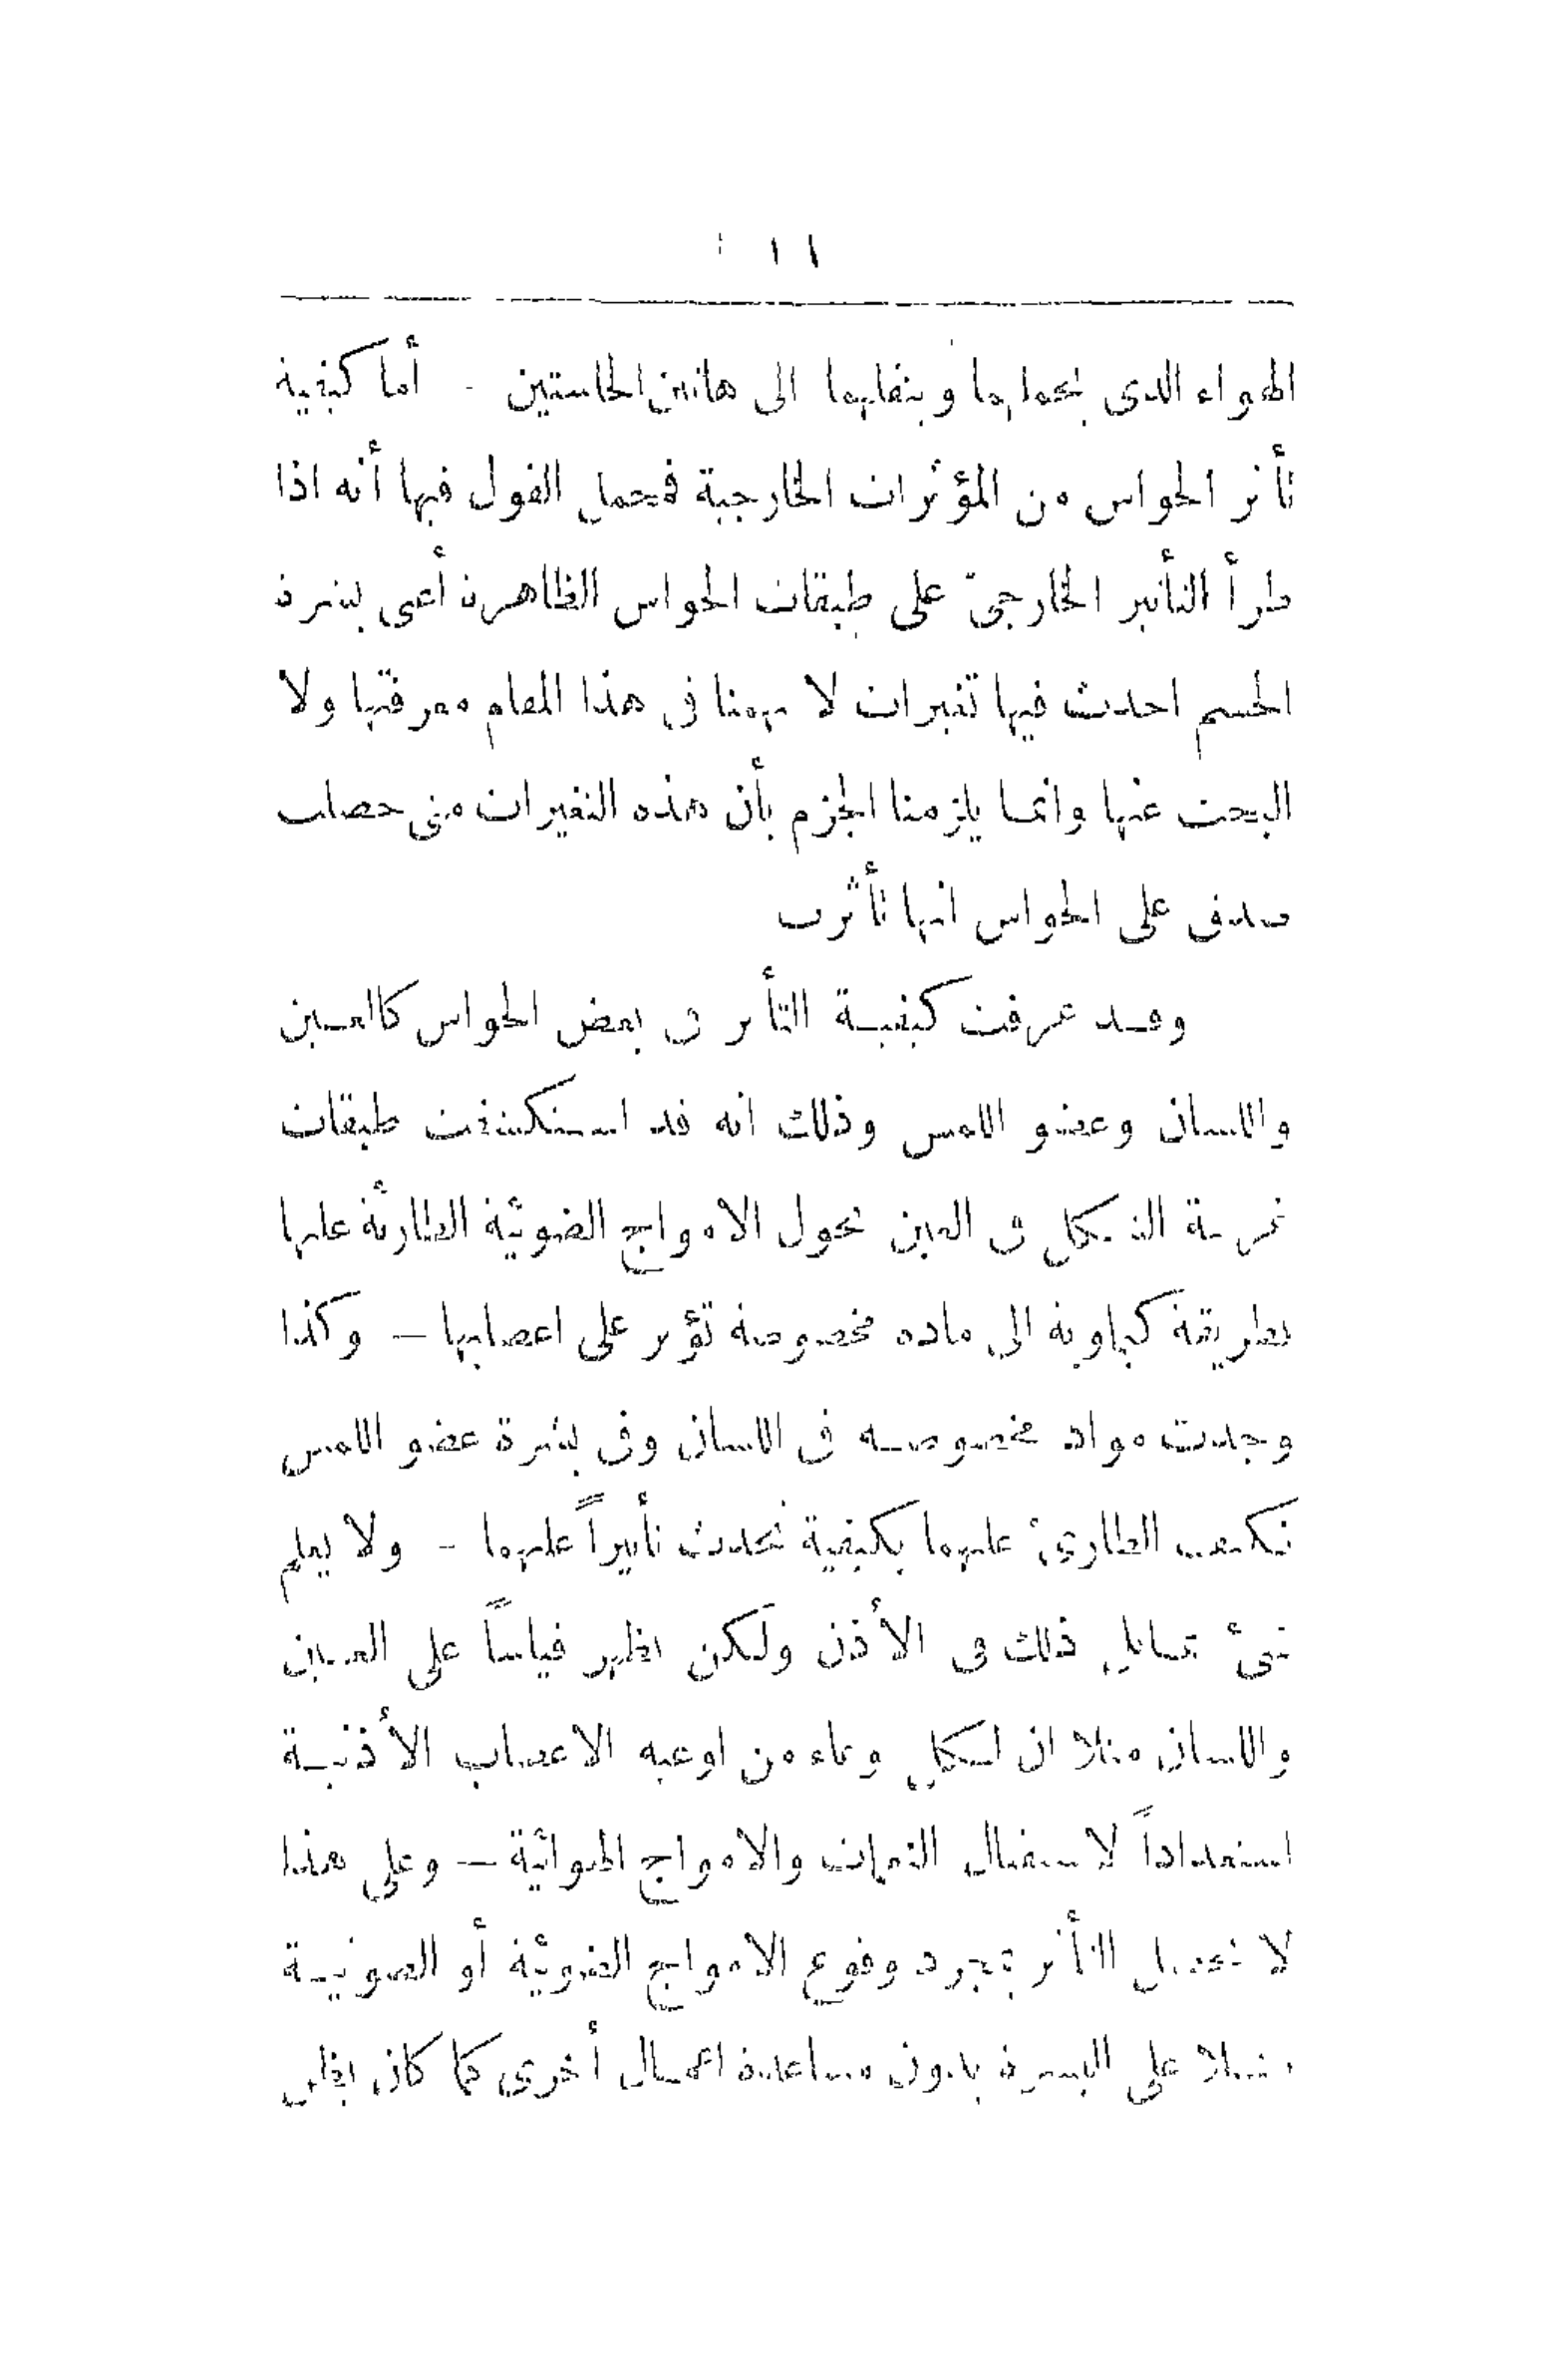 الهواء الذى يحملهما وينقلهما الى هاتين الحاستين - أما كيفية
تأثر الحواس من المؤثرات الخارجية فمجمل القول فيها أنه اذا
طرأ التأثير الخارجىّ على طبقات الحواس الظاهرة أعنى بشرة
الجسم احدث فيها تغيرات لا يهمنا فى هذا المقام معرفتها ولا
البحث عنها وانما يلزمنا الجزم بأن هذه التغيرات متى حصلت
صدق على الحواس انها تأثرت
وقد عرفت كيفية التأثر فى بعض الحواس كالعين
واللسان وعضو اللمس وذلك انه قد استكشفت طبقات
الشكل فى العين تحول الامواج الضوئية الطارئة عليها
بطريقة كيماوية الى مادة مخصوصة تؤثر على اعصابها — وكذا
وجدت مواد مخصوصة فى اللسان وفى بشرة عضو اللمس
الطارىء عليهما بكيفية تحدث تأثيراً عليهما - ولا يعلم
شىء يماثل ذلك فى الأذن ولكن يظهر قياساً على العين
واللسان مثلا ان لكل وعاء من اوعية الاعصاب الأذنية
استعداداً لاستقبال النغمات والامواج الهوائية — وعلى هذا
لا يحصل التأثر بمجرد وقوع الامواج الضوئية أو الصوتية
مثلا على البشرة بدون مساعدة اعمال أخرى كما كان يظن